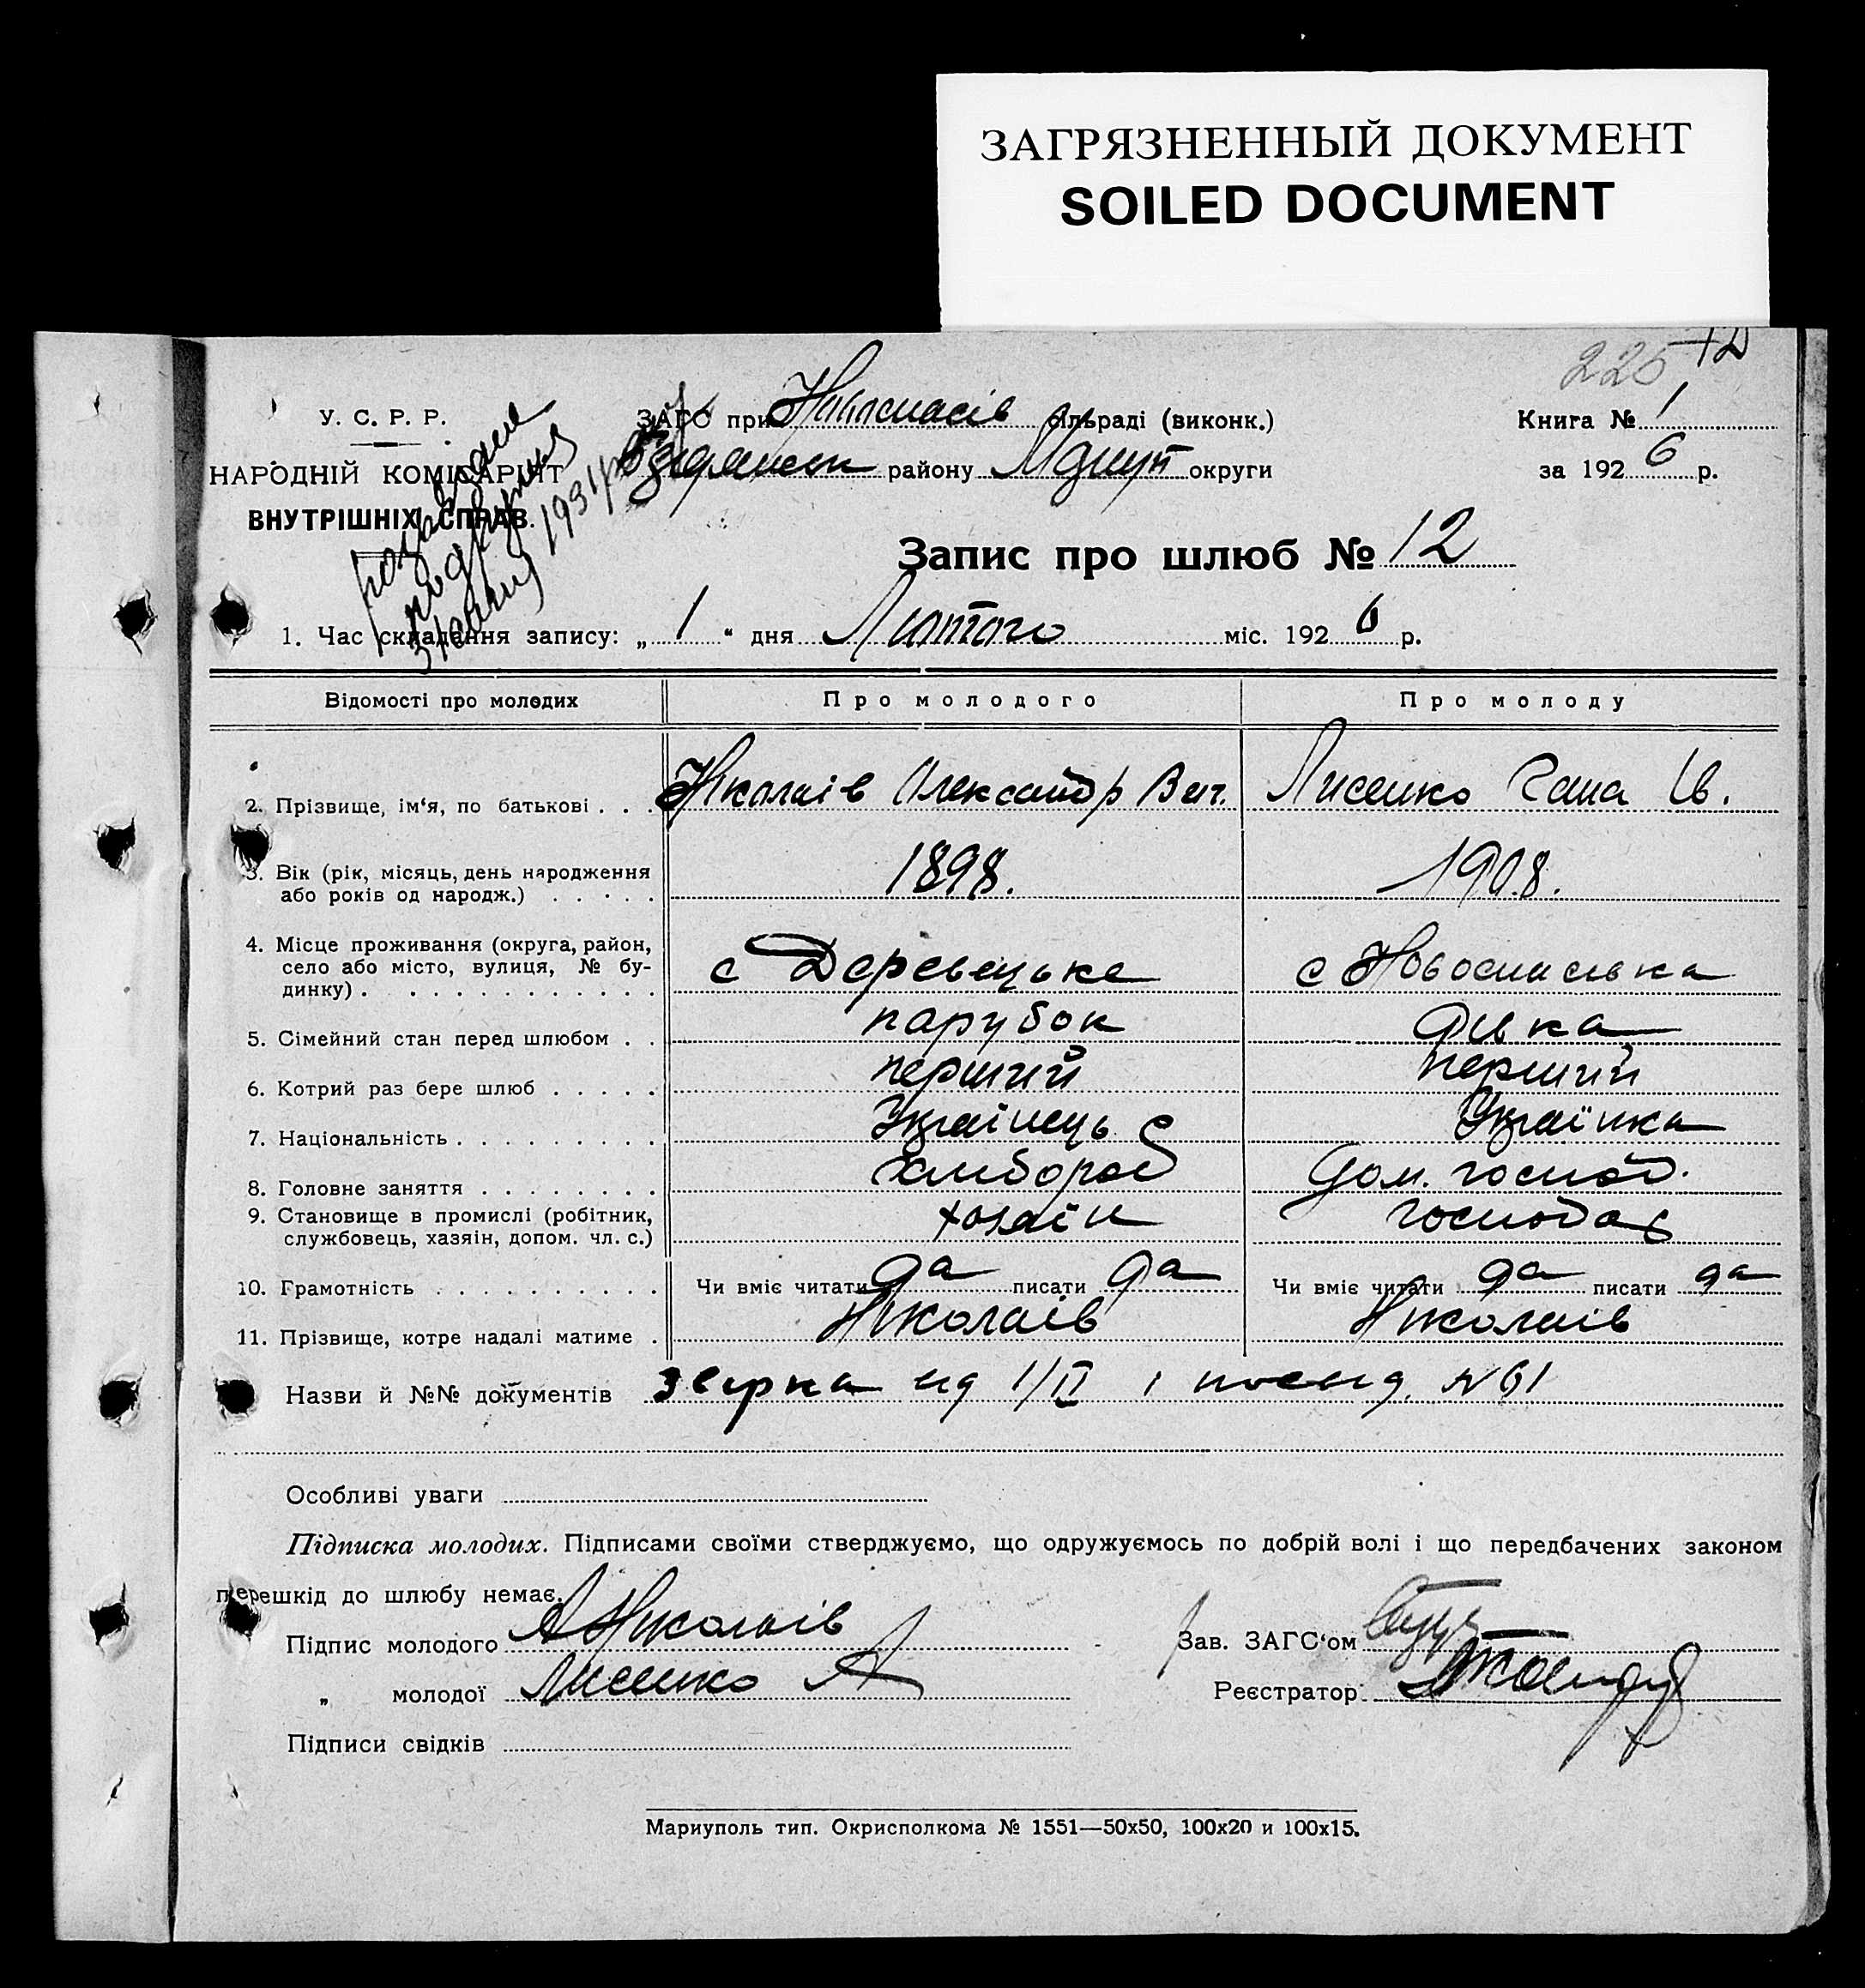 ЗАГРЯЗНЕННЫЙ ДОКУМЕНТ
SOILED DOCUMENT
225 12
У. С. Р. Р.
НАРОДНІЙ КОМІСАРІЯТ
ВНУТРІШНІХ СПРАВ.
ЗАГС при Новоспасів сільраді (виконк.)
району округи
Книга № 1
за 1926 р.
1931
Запис про шлюб № 12
1. Час складання запису: „ 1 “ дня Лютого міс. 1926 р.
Відомості про молодих Про молодого Про молоду
2. Прізвище, ім‘я, по батькові . . . Ніколаів Олександр Лисенко Гана Ів.
3. Вік (рік, місяць, день народження
або років од народж.) . . . . . 1898. 1908.
4. Місце проживання (округа, район,
село або місто, вулиця, № бу-
динку) . . . . . . . . . . . . с Деревецьке с Новоспасівка
5. Сімейний стан перед шлюбом . . парубок дівка
6. Котрий раз бере шлюб . . . . . перший перший
7. Національність . . . . . . . . . Українець Українка
8. Головне заняття . . . . . . . . хлібороб Дом. господ.
9. Становище в промислі (робітник,
службовець, хазяін, допом. чл. с.) хозаін
10. Грамотність . . . . . . . . . . Чи вміє читати да писати да Чи вміє читати да писати да
11. Прізвище, котре надалі матиме . Ніколаів Николаів
Назви й №№ документів звірка від 1/II і посвід. №61
Особливі уваги
Підписка молодих. Підписами своїми стверджуємо, що одружуємось по добрій волі і що передбачених законом
перешкід до шлюбу немає.
Підпис молодого А Николаів
„ молодої Лисенко А
Підписи свідків
Зав. ЗАГС‘ом
Реєстратор
Мариуполь тип. Окрисполкома № 1551—50х50, 100х20 и 100х15.